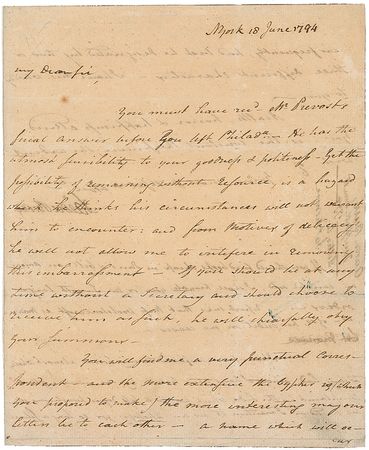 NYork 18 June 1794
My Dear Sir,
You must have recd. Mr Prevosts
final answer before you left Philada. — He has the
utmost sensibility to your goodness & politeness — Yet the
possibility of remaining without resource, is a hazard
which he thinks his circumstances will not warrant
him to encounter: and from motives of delicacy
he will not allow me to interfere in removing
this embarrassment — If you should be at any
time without a Secretary and should choose to
receive him as such he will chearfully obey
your summons —
You will find me, a very punctual corres-
pondent — and the more extensive the Cypher wh/ I think
you proposed to make/ the more interesting may our
letters be to each other — a name which will oc-
cur